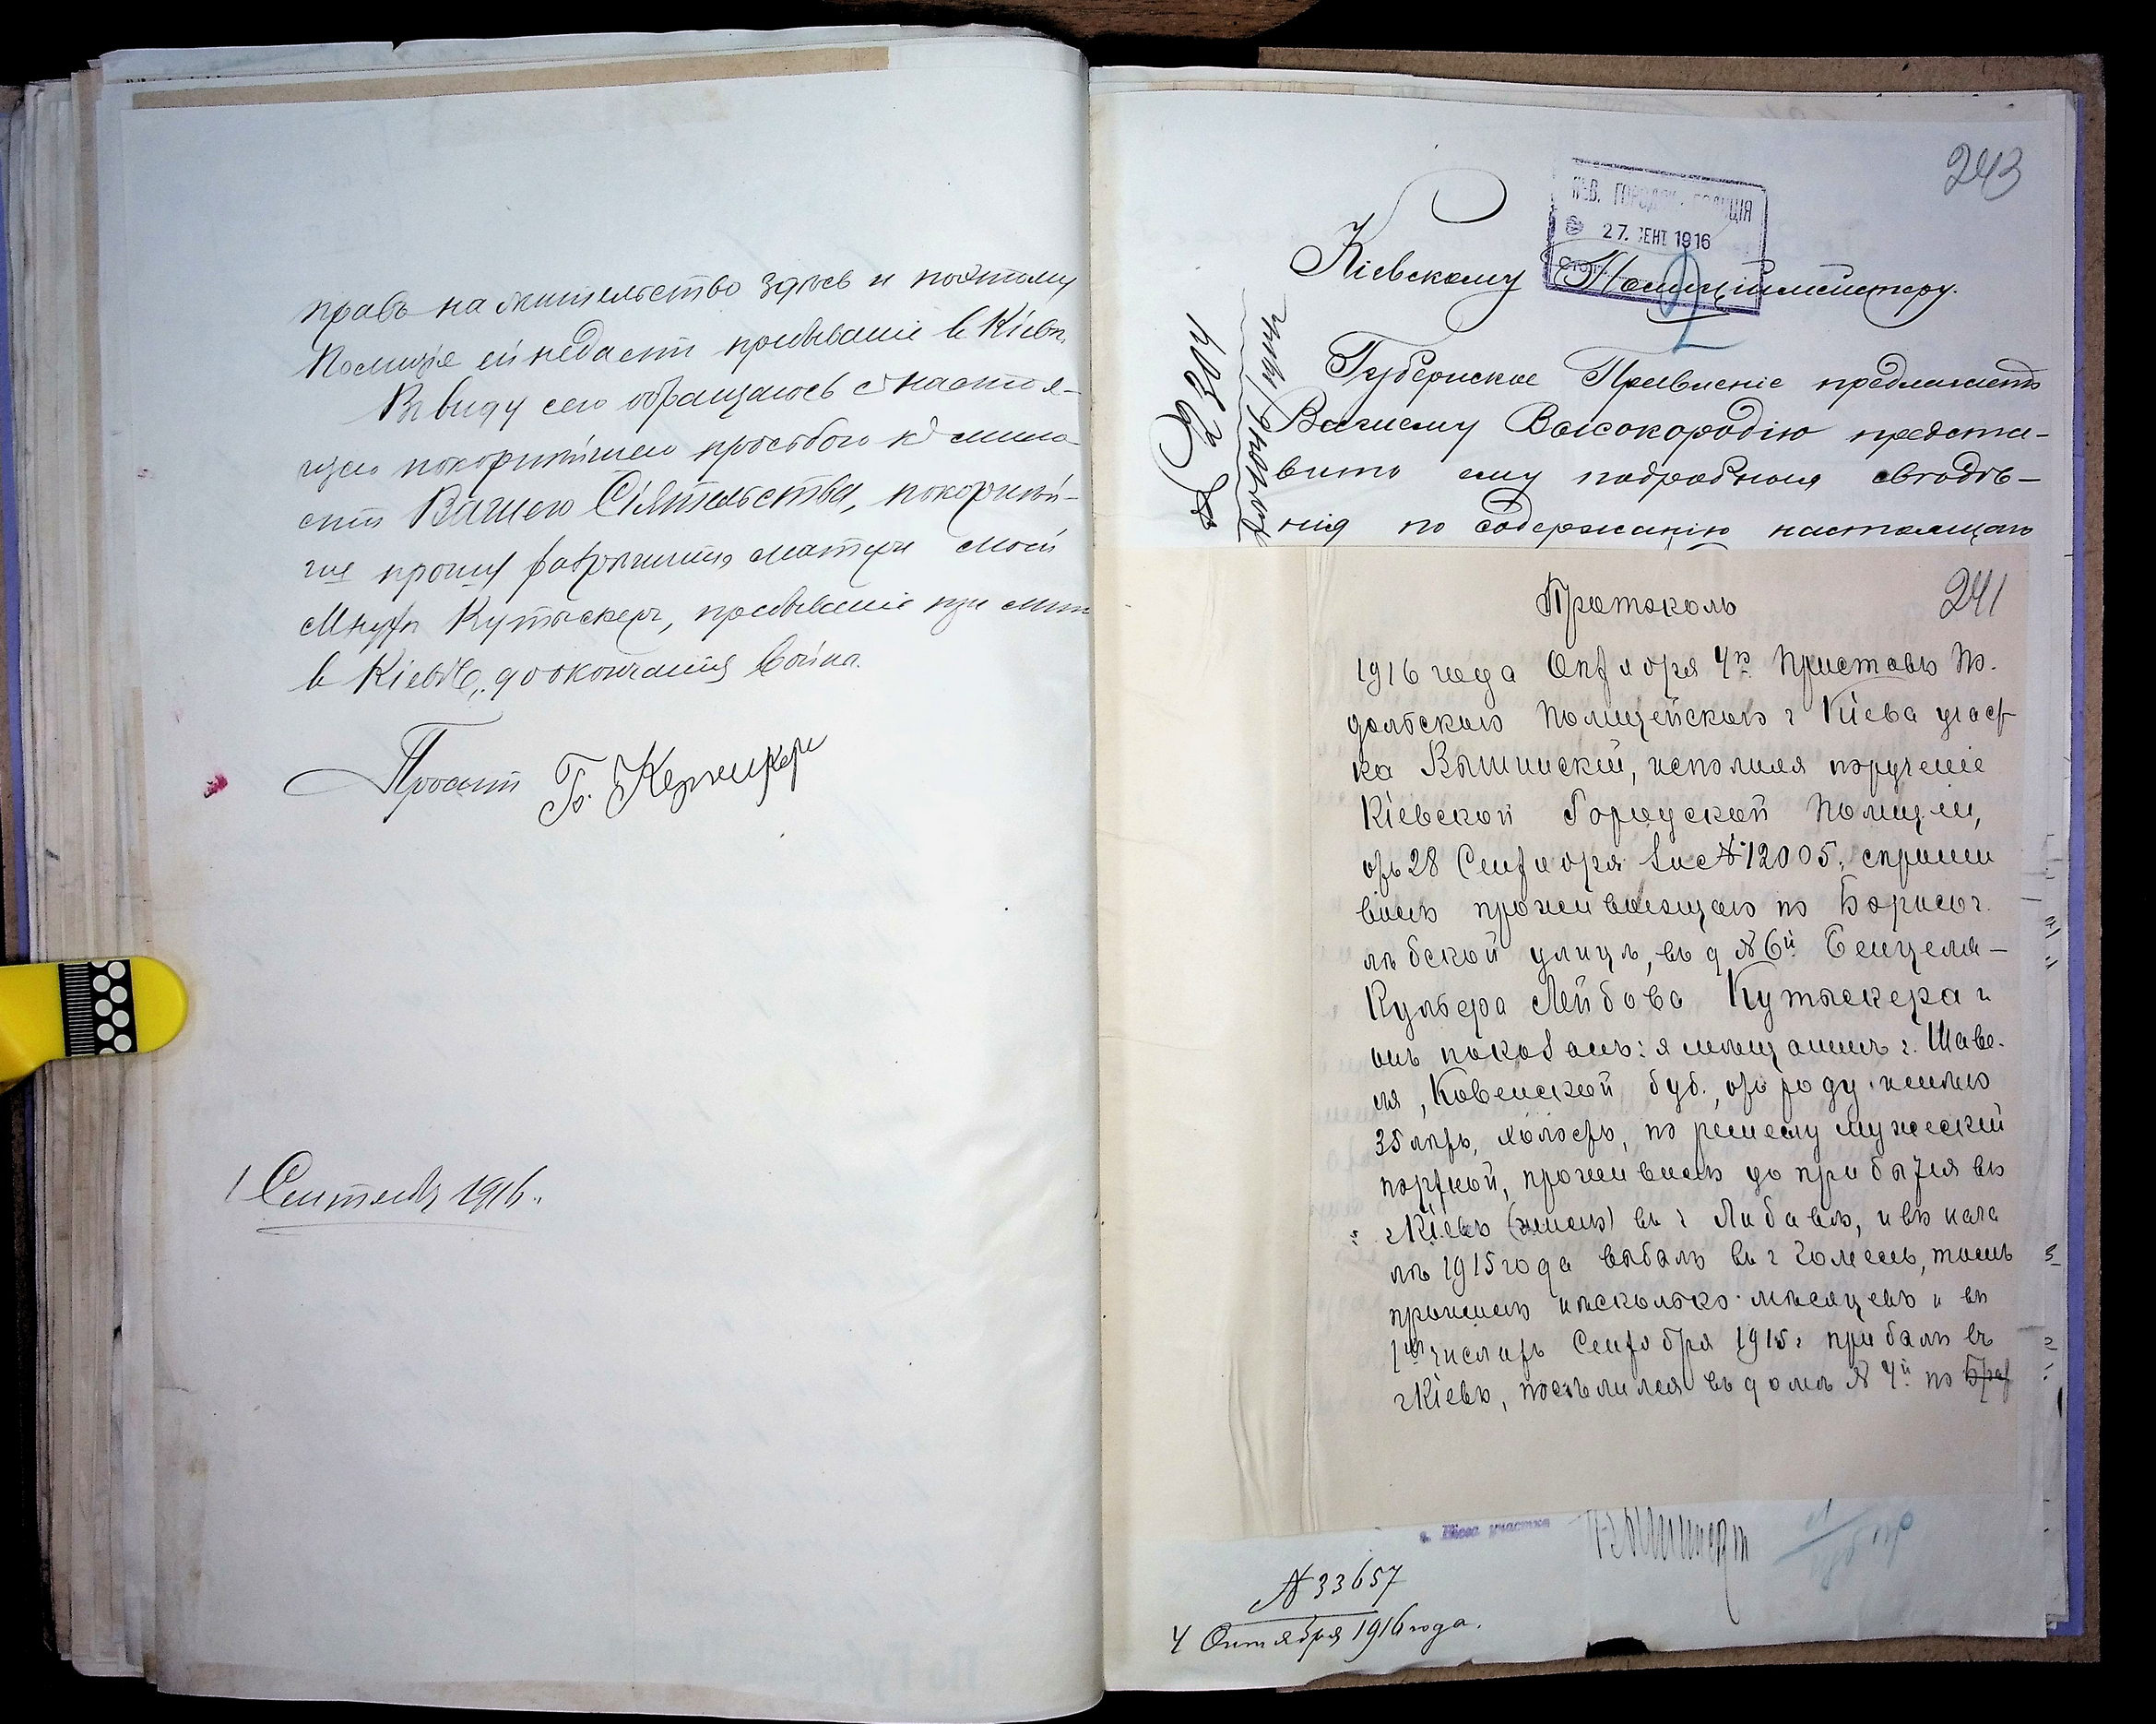 правъ на жительство здѣсь и поэтому
Полиція ей недаетъ пребываніе в Кіевѣ.
Въ виду сего обращаюсь с настоя-
щею покорнѣйшею просьбою къ мило-
сти Вашего Сіятельства, покорнѣй-
ше прошу разрѣшить матери моей
Кутыскеръ, пребываніе при мнѣ
в Кіевѣ, до окончанія войны.
Проситъ
1 Сентября 1916.
243
КІЕВ. ГОРОДСК. ПОЛИЦІЯ
27. СЕНТ 1916
Кіевскому Полиціймейстеру.
Губернское Правленіе предлагаетъ
Вашему Высокородію предста-
вить ему подробныя свѣдѣ-
нія по содержанію настоящаго
241
Протоколъ
1916 года Октября 4го Приставъ По-
дольскаго Полицейскаго г Кіева участ
ка Вышинскій, исполняя порученіе
Кіевской Городской Полиціи,
отъ 28 Сентября за № 12005, спраши
валъ проживающаго по Борисог
лѣбской улицѣ, въ д № 6й Бенцеля-
Кульера Лейбова Кутыскера и
онъ показалъ: я мѣщанинъ г. Шаве-
ля, Ковенской губ., отъ роду имѣю
35 лѣтъ, холостъ, по ремеслу мужескій
портной, проживалъ до прибытія въ
г Кіевъ (жилъ) въ г Либавѣ, и въ нача
лѣ 1915 года выбылъ въ г Гомель, тамъ
прожилъ нѣсколько мѣсяцевъ и въ
1хъ числахъ Сентября 1915 г прибылъ въ
г Кіевъ, поселился въ домѣ № 4й по
г. Кіева участка
№ 33657
4 Октября 1916 года.